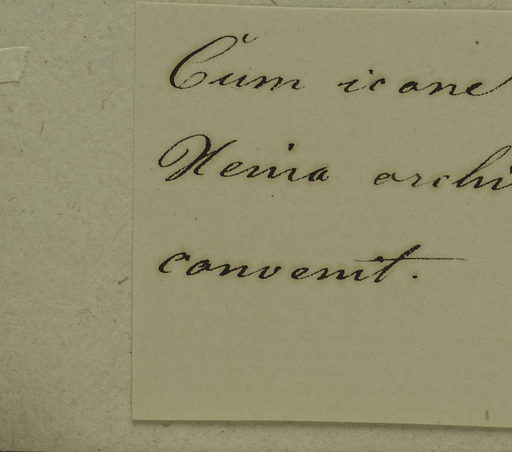 Cum icone
Xenia archi
convenit.